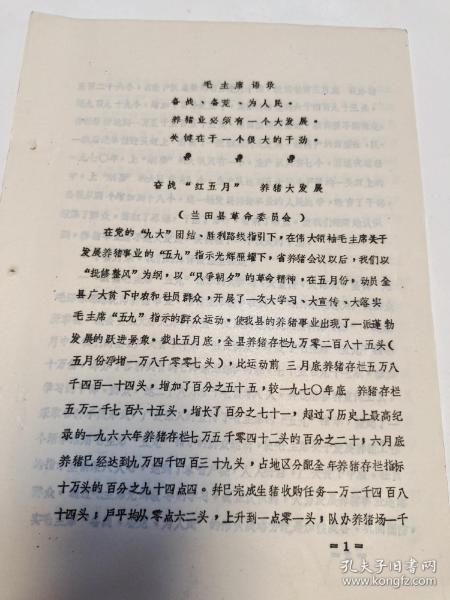 毛主席语录
备战、备荒、为人民。
养猪业必须有一个大发展。
关键在于一个很大的干劲。
奋战“红五月” 养猪大发展
（兰田县革命委员会）
在党的“九大”团结、胜利路线指引下，在伟大领袖毛主席关于
发展养猪事业的“五九”指示光辉照耀下，省养猪会议以后，我们以
“批修整风”为纲，以“只争朝夕”的革命精神，在五月份，动员全
县广大贫下中农和社员群众，开展了一次大学习、大宣传、大落实
毛主席“五九”指示的群众运动。使我县的养猪事业出现了一派蓬勃
发展的跃进景象。截止五月底，全县养猪存栏九万零二百八十五头（
五月份净增一万八千零零七头），比运动前三月底养猪存栏五万八
千四百一十四头，增加了百分之五十五，较一九七〇年底存栏
五万二千七百六十五头，增长了百分之七十一，超过了历史上最高纪
录的一九六六年养猪存栏七万五千零四十二头的百分之二十，六月底
养猪已经达到九万四千四百三十九头，占地区分配全年养猪存栏指标
十万头的百分之九十四点四。并已完成生猪收购任务一万一千四百八
十四头；户平均从零点六二头，上升到一点零一头；队办养猪场一千
=1=
孔夫子旧书网